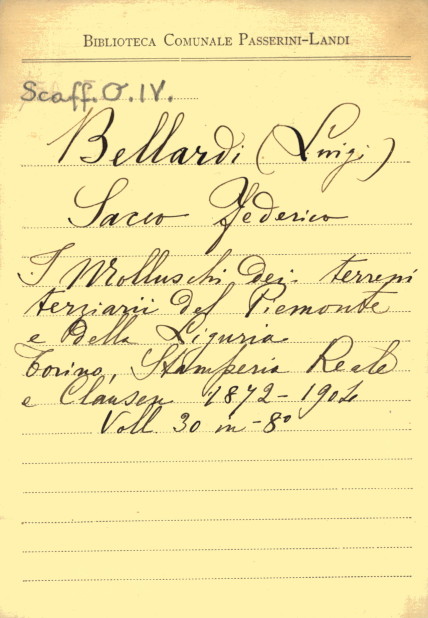 BIBLIOTECA COMUNALE PASSERINI-LANDI
Scaff. O. IV.
Bellardi (Luigi)
Sacco Federico
I Molluschi dei terreni
terziarii del Piemonte
e della Liguria
Torino, Stamperia Reale
e Clausen 1872-1904
Voll. 30 in-8°